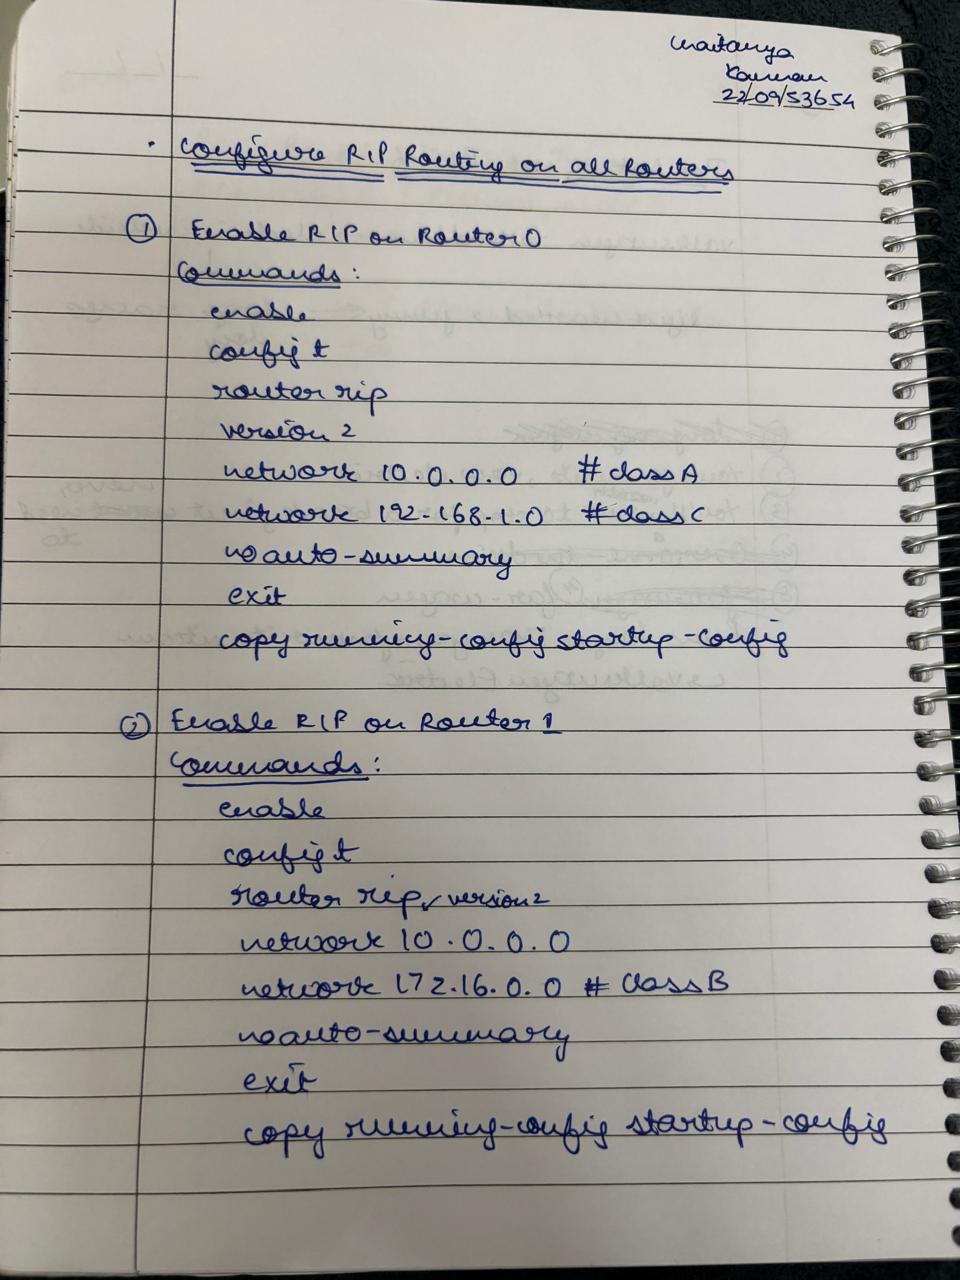 22/09/53654
• Configure RIP Routing on all Routers
① Enable RIP on Router 0
Commands:
enable
config t
router rip
version 2
network 10.0.0.0 # class A
network 192.168.1.0 # class C
no auto-summary
exit
copy running-config startup-config
② Enable RIP on Router 1
Commands:
enable
config t
router rip, version 2
network 10.0.0.0
network 172.16.0.0 # Class B
no auto-summary
exit
copy running-config startup-config